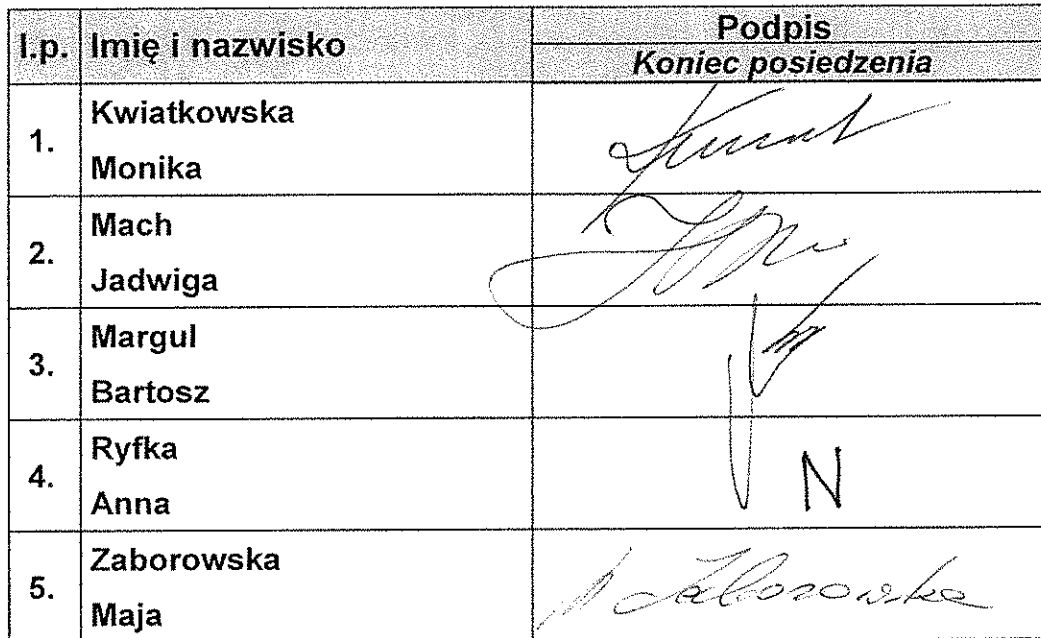 l.p. Imię i nazwisko Podpis
Koniec posiedzenia
1. Kwiatkowska
Monika
2. Mach
Jadwiga
3. Margul
Bartosz
4. Ryfka
Anna
N
5. Zaborowska
Maja
Zaborowska